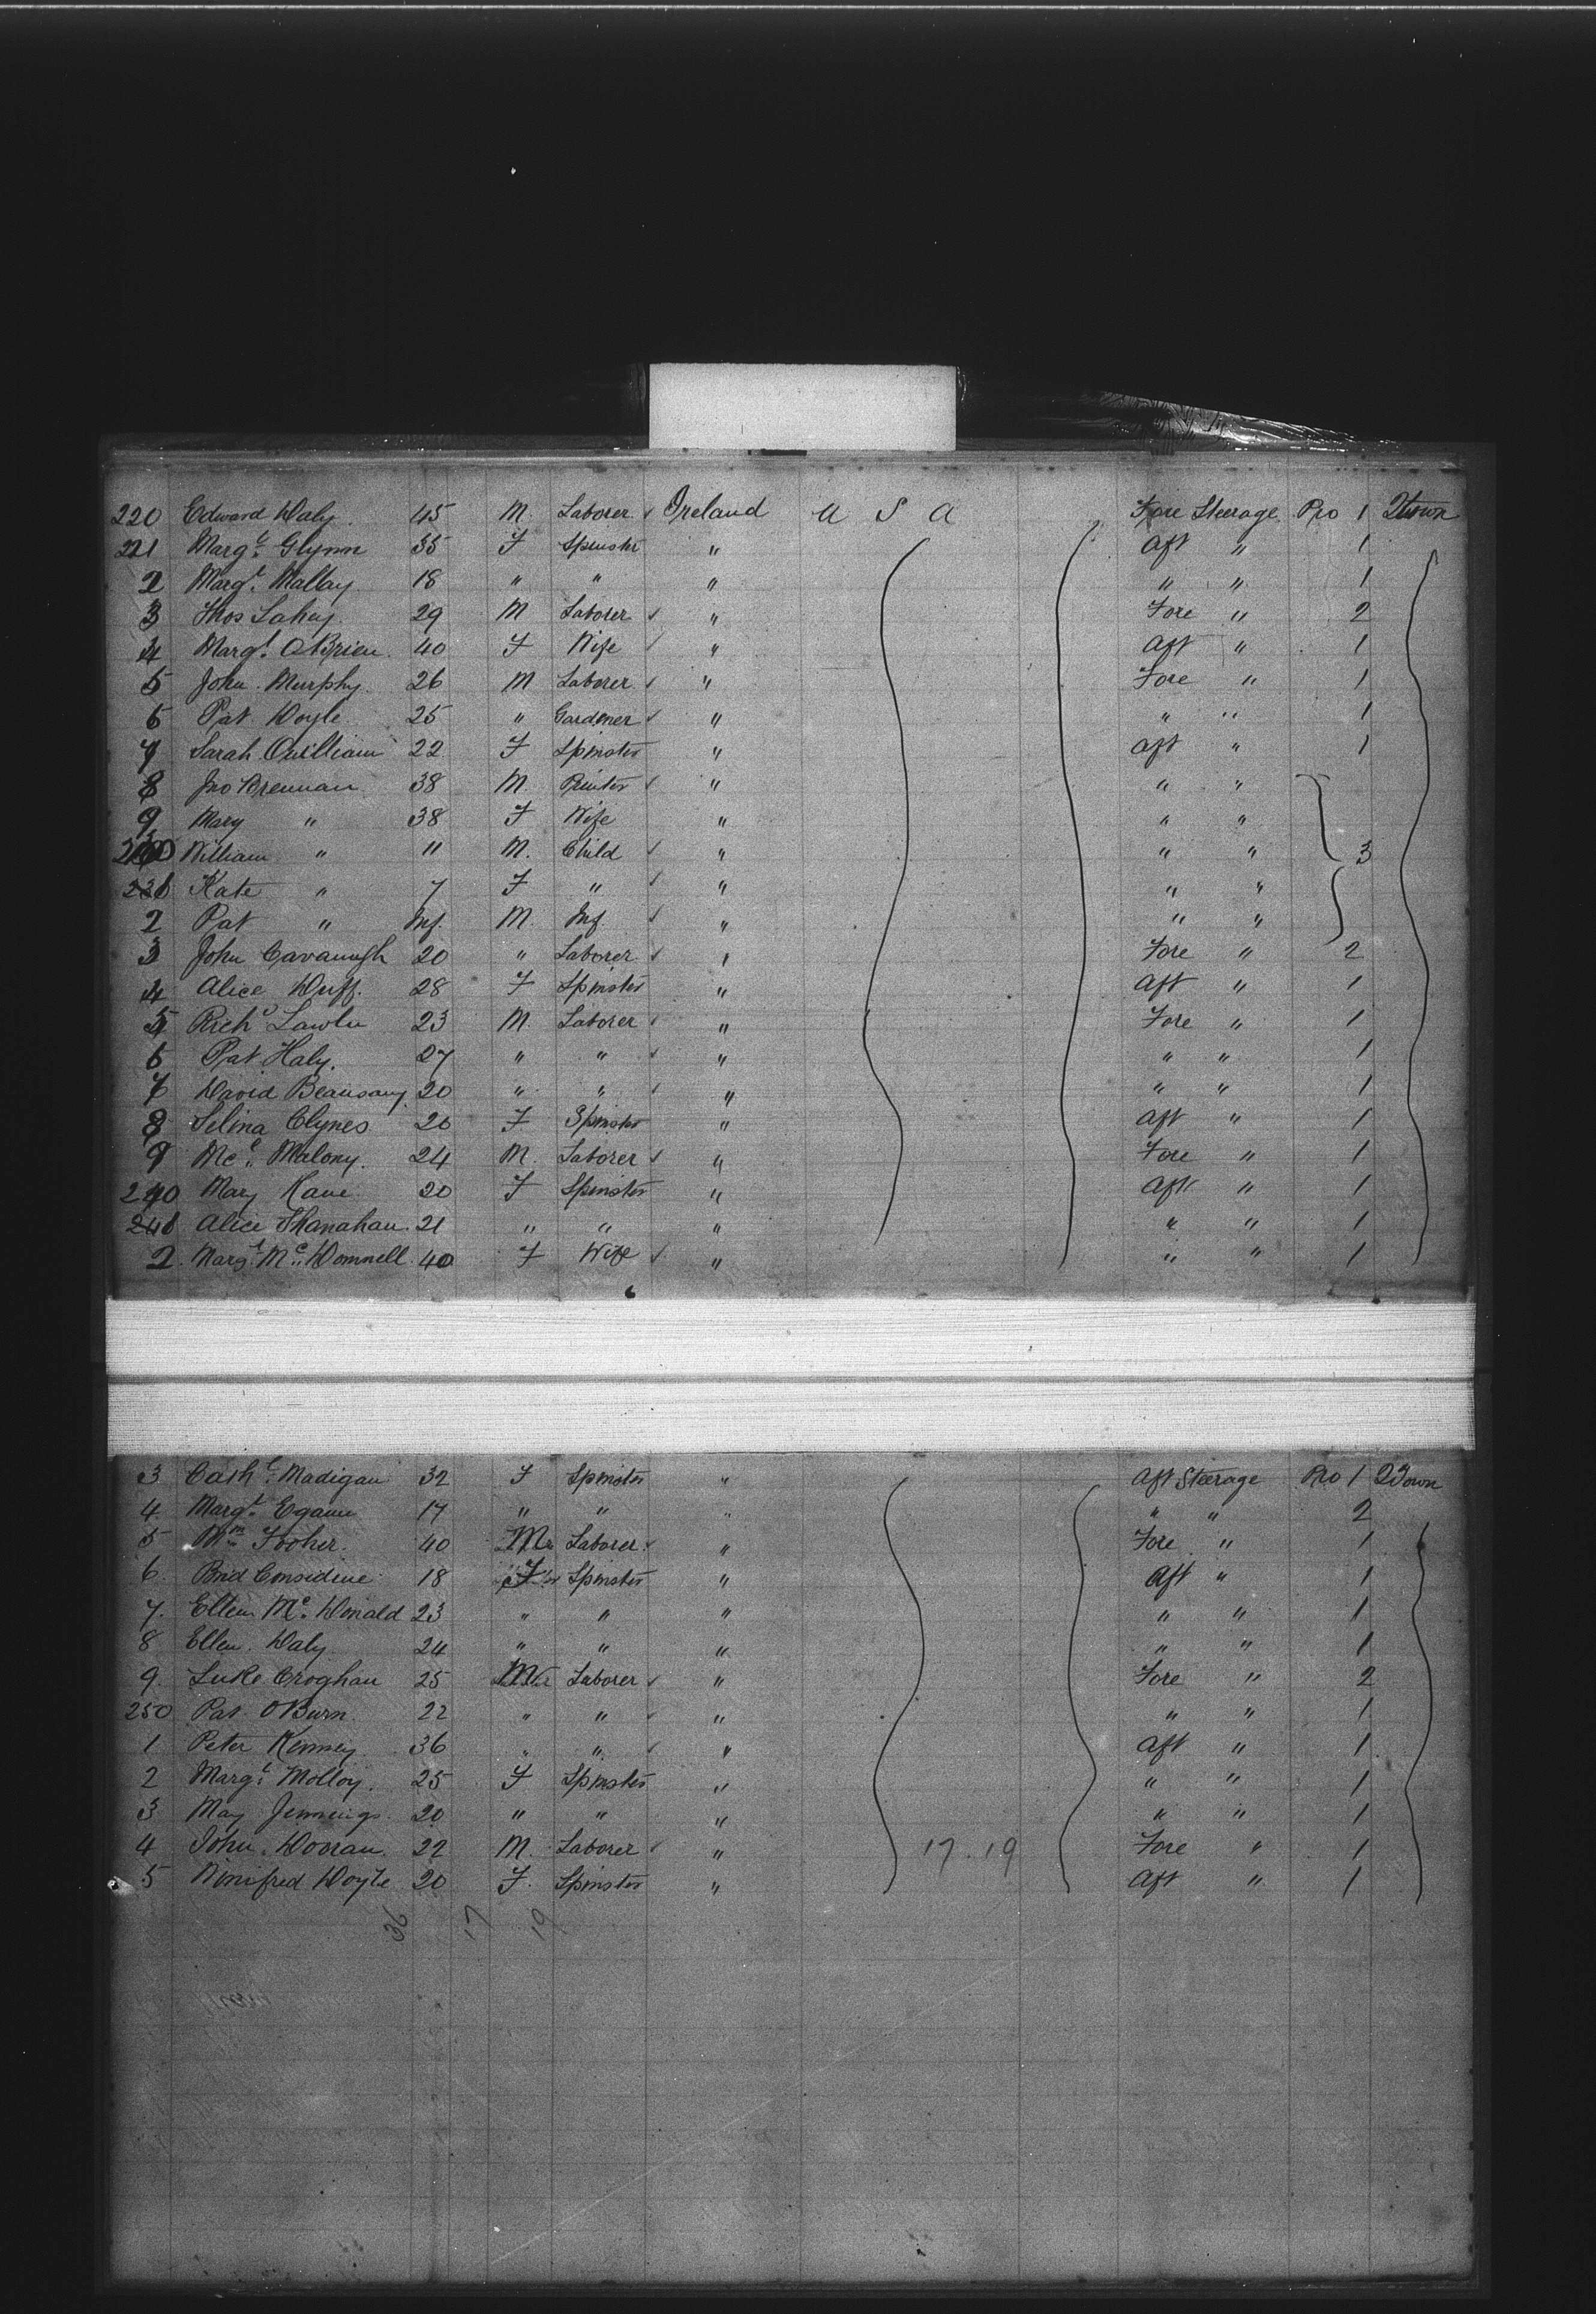 220 Edward Daly 45 M. Laborer Ireland U S A Fore Steerage Pro 1 Qtown
221 Margt. Glynn 35 F Spinster " Aft " 1
2 Margt. Mallay 18 " " " " " 1
3 Thos Lahey 29 M Laborer " Fore " 2
4 Margt. OBrien 40 F Wife " Aft " 1
5 John Murphy 26 M Laborer " Fore " 1
6 Pat Doyle 25 " Gardener " " " 1
7 Sarah Quilliam 22 F Spinster " Aft " 1
8 Jno Brennan 38 M. Printer " " "
9 Mary " 38 F Wife " " "
William " 11 M. Child " " " 3
231 Kate " 7 F " " " "
2 Pat " Inf. M. Inf. " " "
3 John Cavanagh 20 " Laborer " Fore " 2
4 Alice Duff. 28 F Spinster " Aft " 1
5 Richd Lawler 23 M. Laborer " Fore " 1
6 Pat Haly. 27 " " " " " 1
7 David Beausang 20 " " " " " 1
8 Selina Clynes 20 F Spinster " Aft " 1
9 Mcl. Malony. 24 M. Laborer " Fore " 1
240 Mary Kane 20 F Spinster " Aft " 1
241 Alice Shanahan. 21 " " " " " 1
2. Margt. Mc. Donnell. 40 F Wife " " " 1
3 Cathe. Madigan 32 F Spinster " Aft Steerage Pro 1 QTown
4. Margt. Egann 17 " " " " " 2
5 Wm. Tooher. 40 M Laborer " Fore " 1
6. Brid Considine 18 F Spinster " Aft " 1
7. Ellen Mc. Donald 23 " " " " " 1
8 Ellen. Daly. 24 " " " " " 1
9. Luke Croghan 25 M Laborer " Fore " 2
250 Pat OBurn. 22 " " " " " 1
1 Peter Kenney 36 " " " Aft " 1
2 Margt. Molloy. 25 F Spinster " " " 1
3 May Jennings. 20 " " " " " 1
4 John. Dooran. 22 M. Laborer " 17.19 Fore " 1
5 Winifred Doyle 20 F. Spinster " Aft " 1
36 17 19